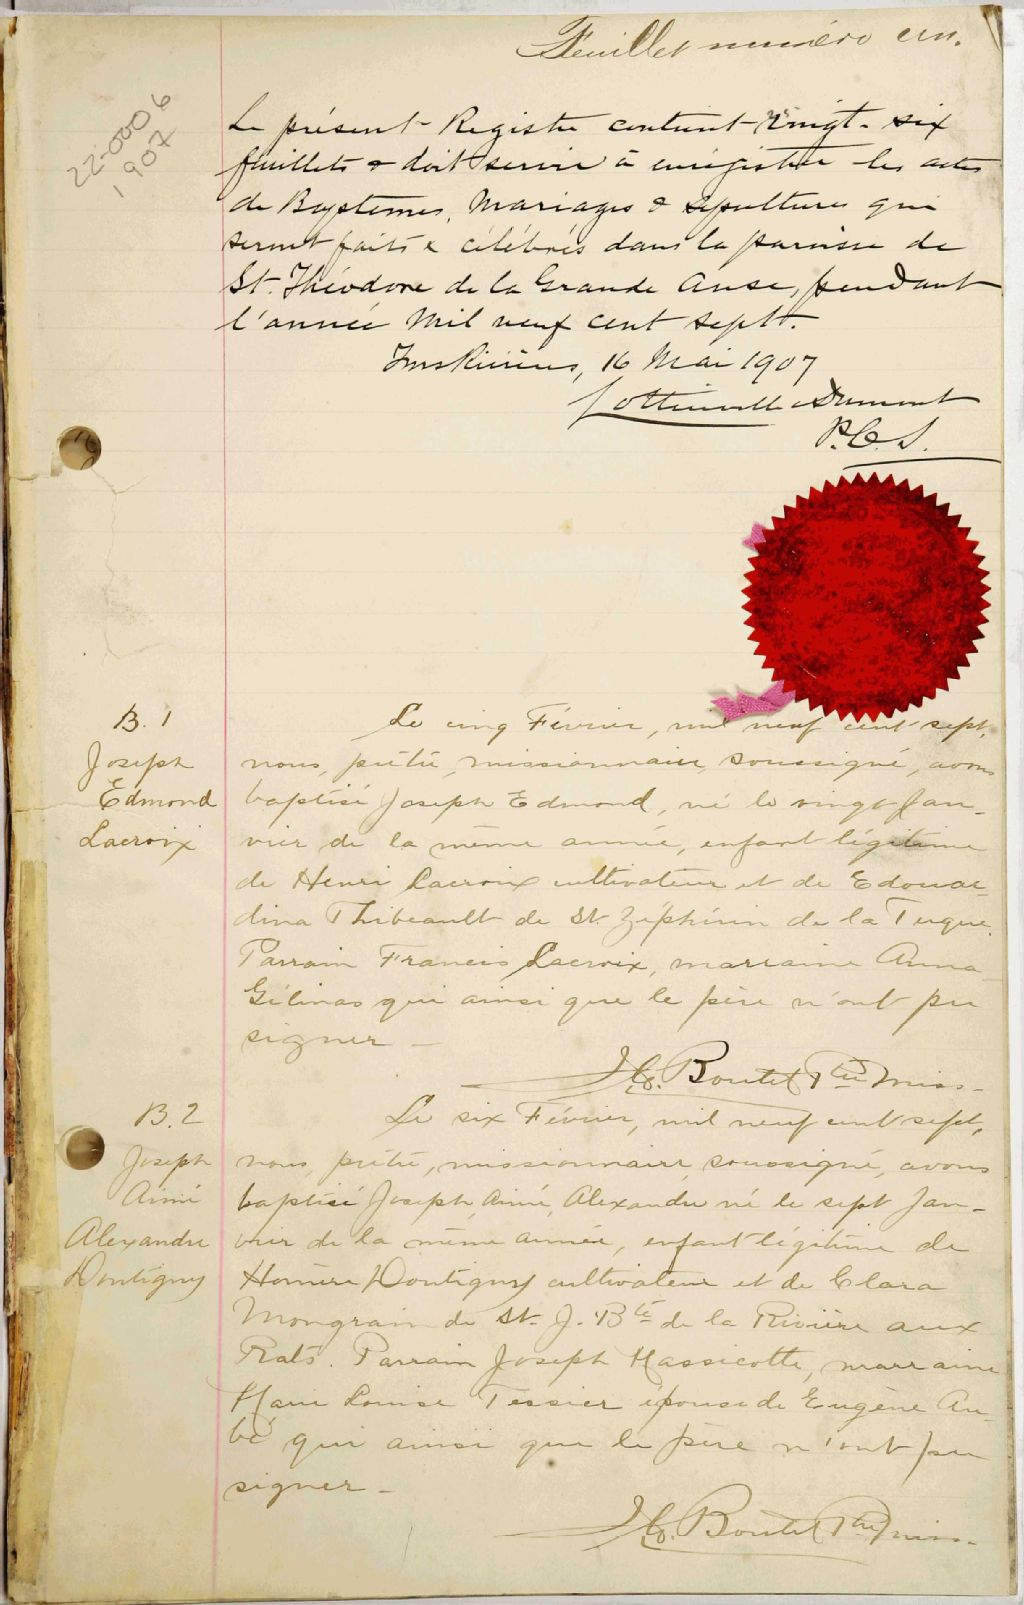 Feuillet numéro un.
22-00006
1907
Le présent Registre contient vingt-six
feuillets & doit servir à enrégistrer les actes
de Baptêmes, Mariages & sépultures qui
seront faits & célébrés dans la paroisse de
St. Théodore de la Grande Anse, pendant
l'année Mil neuf cent sept.
Trois Rivières, 16 Mai 1907
Lottinville & Dumont
P.C.S.
B. 1
Joseph
Edmond
Lacroix
Le cinq Février, mil neuf cent sept,
nous, prêtre, missionnaire, soussigné, avons
baptisé Joseph Edmond, né le vingt Jan-
vier de la même année, enfant légitime
de Henri Lacroix cultivateur et de Edouar-
dina Thibeault de St. Zéphirin de la Tuque.
Parrain Francis Lacroix, marraine Anna
Gélinas qui ainsi que le père n'ont pu
signer –
Boutet Ptre Miss.
B. 2
Joseph
Aimé
Alexandre
Dontigny
Le six Février, mil neuf cent sept,
nous, prêtre, missionnaire, soussigné, avons
baptisé Joseph, Aimé, Alexandre né le sept Jan-
vier de la même année, enfant légitime de
Homère Dontigny cultivateur et de Clara
Mongrain de St. J. Bte de la Rivière aux
Rats. Parrain Joseph Massicotte, marraine
Marie Louise Tessier épouse de Eugène Au-
bé qui ainsi que le père n'ont pu
signer –
Boutet Ptre miss.